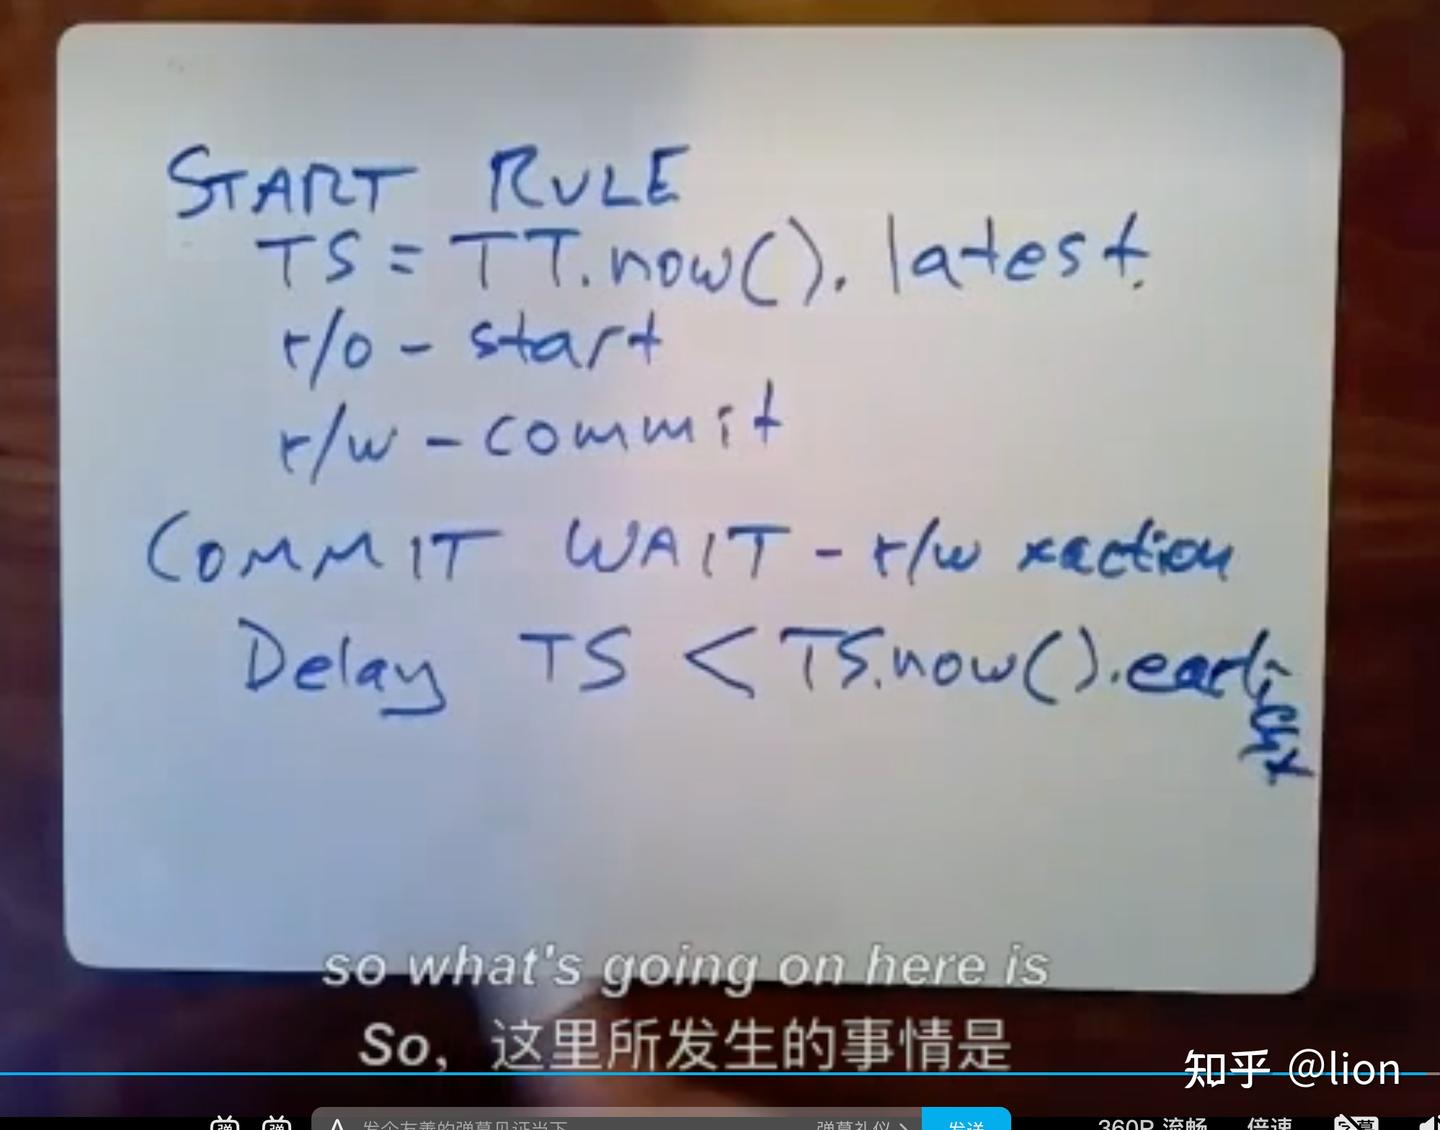 START RULE
TS = TT.now().latest.
r/o - start
r/w - commit
COMMIT WAIT - r/w xaction
Delay TS < TS.now().earliest
so what's going on here is
So，这里所发生的事情是
知乎 @lion
弹 弹
A 发个友善的弹幕见证当下 弹幕礼仪 > 发送 360P 流畅 倍速 字幕